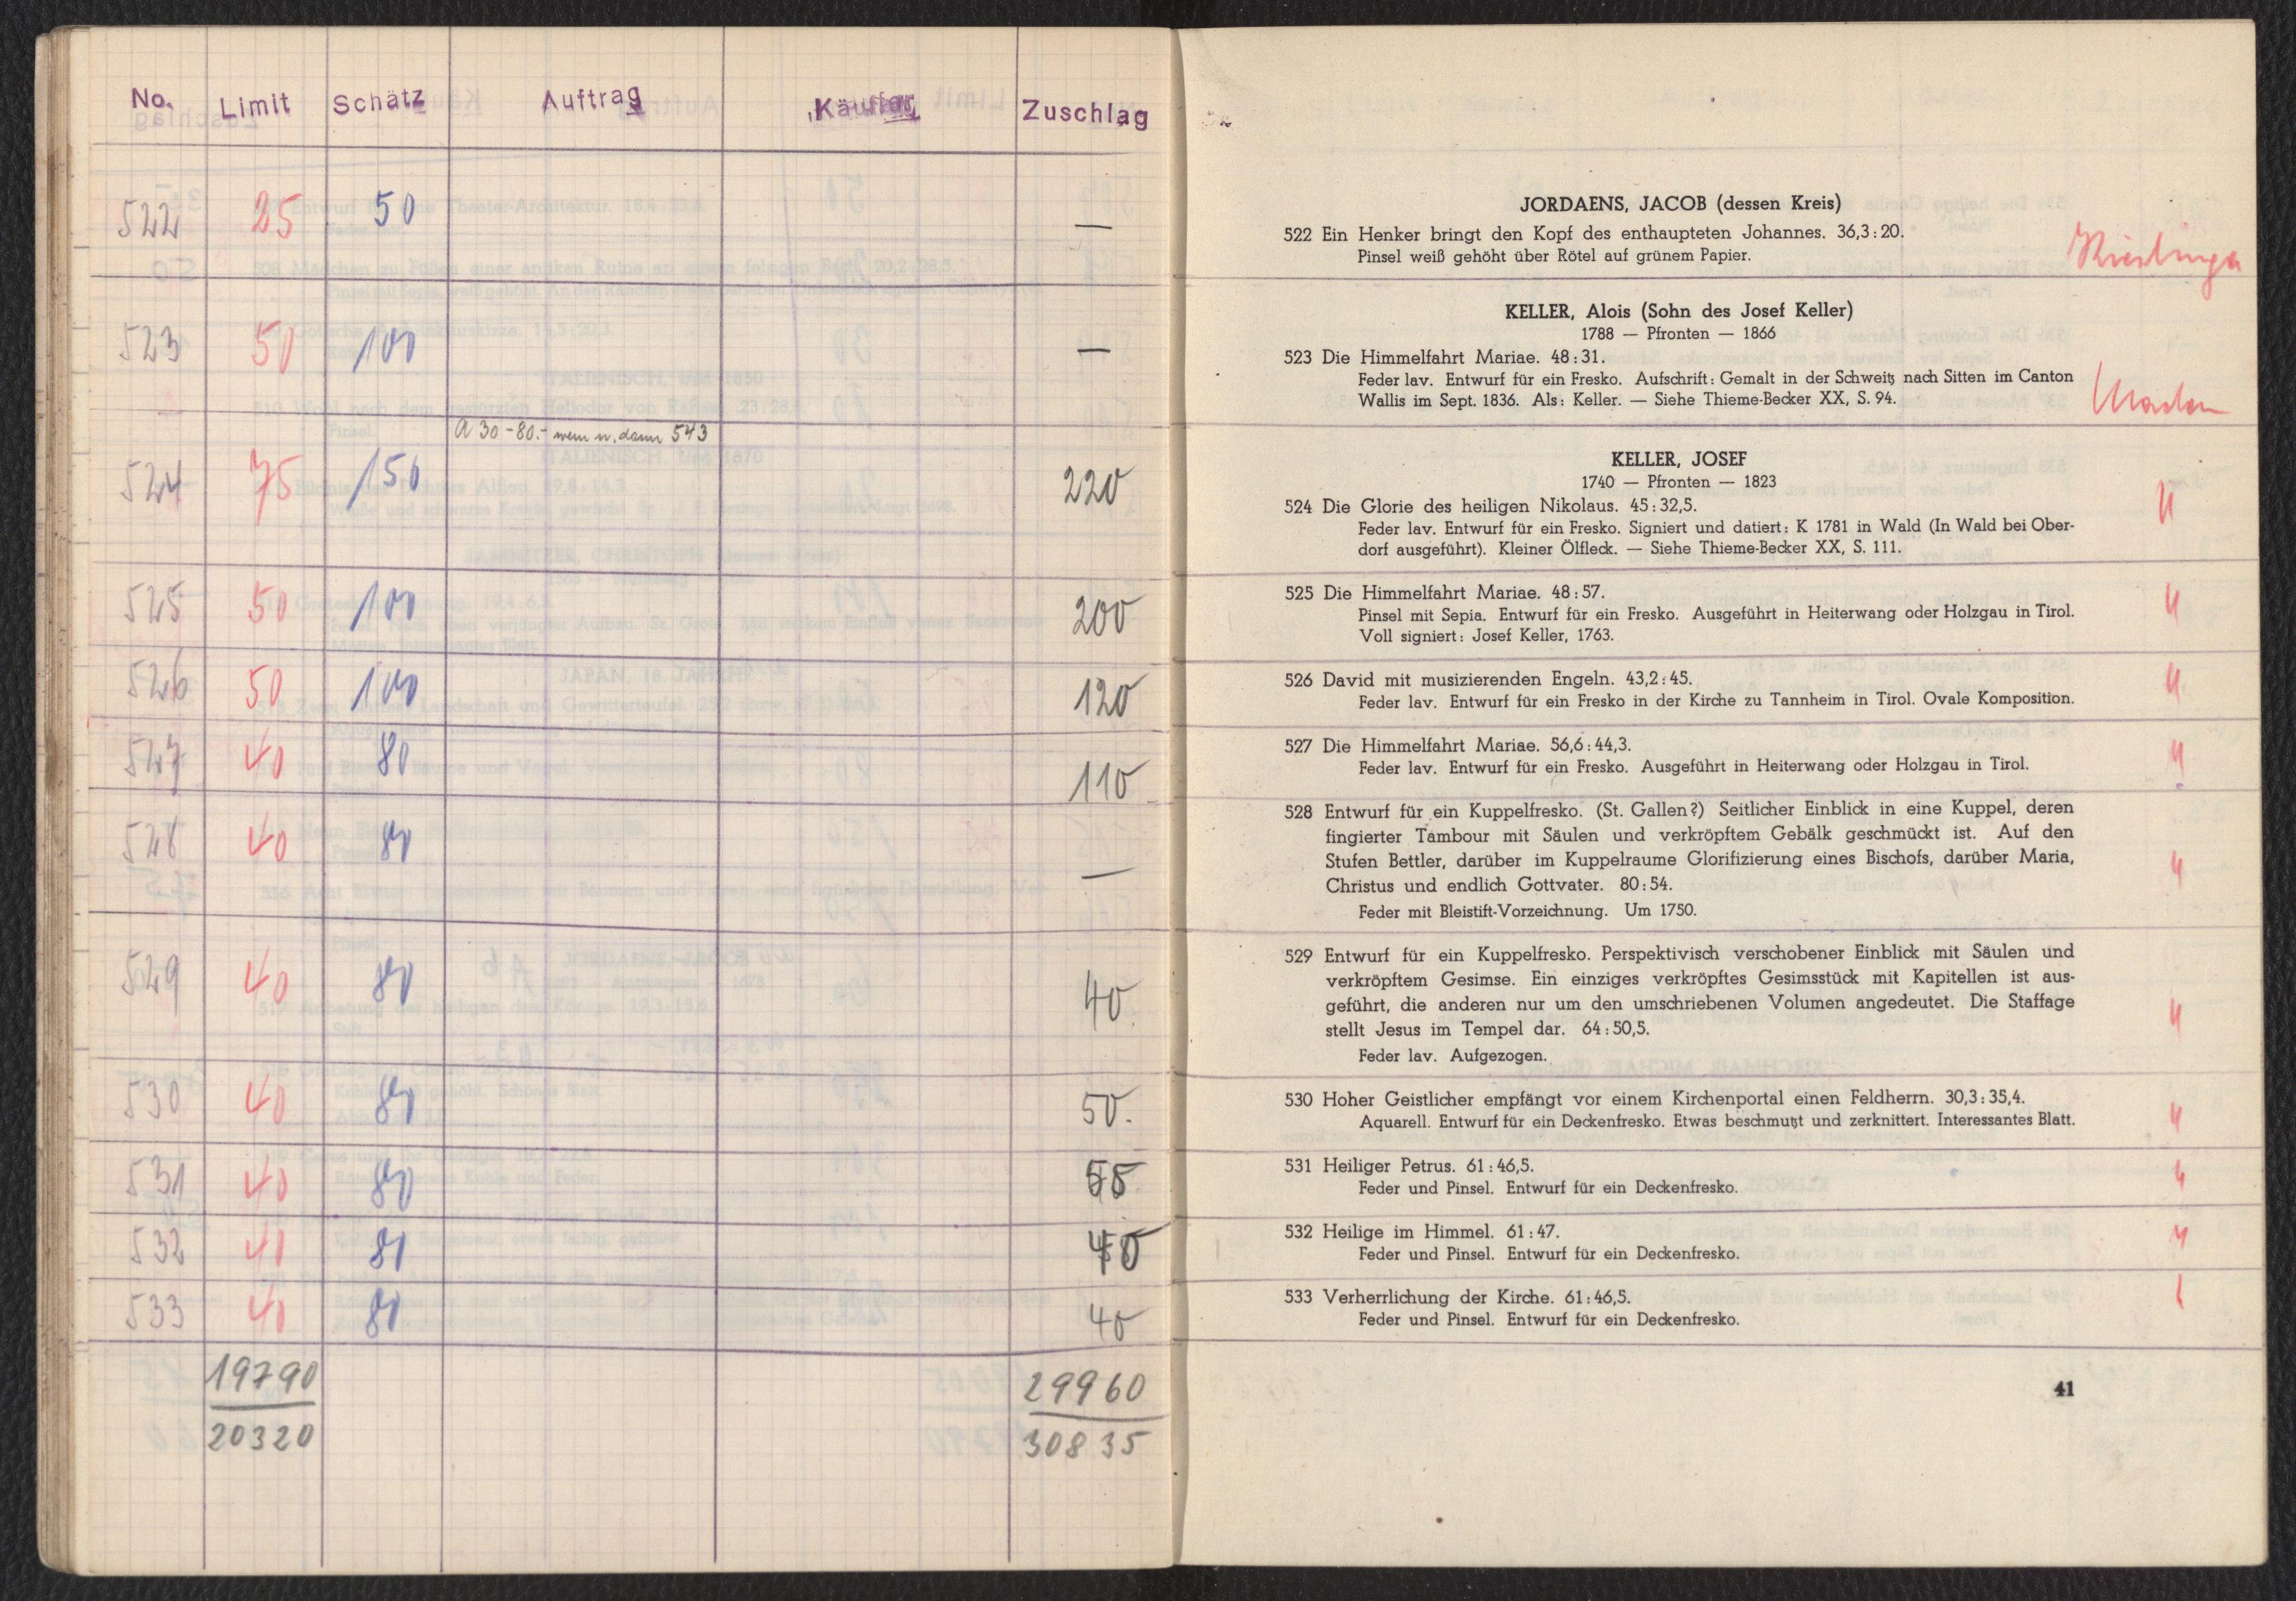 No. Limit Schätz Auftrag Käufer Zuschlag
522 25 50 —
523 50 100 —
A 30 - 80.- wenn n. dann 543
524 75 150 220
525 50 100 200
526 50 100 120
527 40 80 110
528 40 80 —
529 40 80 40
530 40 80 50.
531 40 80 55
532 40 80 40
533 40 80 40
19790 29960
20320 30835
JORDAENS, JACOB (dessen Kreis)
522 Ein Henker bringt den Kopf des enthaupteten Johannes. 36,3 : 20.
Pinsel weiß gehöht über Rötel auf grünem Papier.
KELLER, Alois (Sohn des Josef Keller)
1788 — Pfronten — 1866
523 Die Himmelfahrt Mariae. 48 : 31.
Feder lav. Entwurf für ein Fresko. Aufschrift: Gemalt in der Schweitz nach Sitten im Canton
Wallis im Sept. 1836. Als: Keller. — Siehe Thieme-Becker XX, S. 94.
KELLER, JOSEF
1740 — Pfronten — 1823
524 Die Glorie des heiligen Nikolaus. 45 : 32,5.
Feder lav. Entwurf für ein Fresko. Signiert und datiert: K 1781 in Wald (In Wald bei Ober-
dorf ausgeführt). Kleiner Ölfleck. — Siehe Thieme-Becker XX, S. 111.
525 Die Himmelfahrt Mariae. 48 : 57.
Pinsel mit Sepia. Entwurf für ein Fresko. Ausgeführt in Heiterwang oder Holzgau in Tirol.
Voll signiert: Josef Keller, 1763.
526 David mit musizierenden Engeln. 43,2 : 45.
Feder lav. Entwurf für ein Fresko in der Kirche zu Tannheim in Tirol. Ovale Komposition.
527 Die Himmelfahrt Mariae. 56,6 : 44,3.
Feder lav. Entwurf für ein Fresko. Ausgeführt in Heiterwang oder Holzgau in Tirol.
528 Entwurf für ein Kuppelfresko. (St. Gallen?) Seitlicher Einblick in eine Kuppel, deren
fingierter Tambour mit Säulen und verkröpftem Gebälk geschmückt ist. Auf den
Stufen Bettler, darüber im Kuppelraume Glorifizierung eines Bischofs, darüber Maria,
Christus und endlich Gottvater. 80 : 54.
Feder mit Bleistift-Vorzeichnung. Um 1750.
529 Entwurf für ein Kuppelfresko. Perspektivisch verschobener Einblick mit Säulen und
verkröpftem Gesimse. Ein einziges verkröpftes Gesimsstück mit Kapitellen ist aus-
geführt, die anderen nur um den umschriebenen Volumen angedeutet. Die Staffage
stellt Jesus im Tempel dar. 64 : 50,5.
Feder lav. Aufgezogen.
530 Hoher Geistlicher empfängt vor einem Kirchenportal einen Feldherrn. 30,3 : 35,4.
Aquarell. Entwurf für ein Deckenfresko. Etwas beschmutzt und zerknittert. Interessantes Blatt.
531 Heiliger Petrus. 61 : 46,5.
Feder und Pinsel. Entwurf für ein Deckenfresko.
532 Heilige im Himmel. 61 : 47.
Feder und Pinsel. Entwurf für ein Deckenfresko.
533 Verherrlichung der Kirche. 61 : 46,5.
Feder und Pinsel. Entwurf für ein Deckenfresko.
41